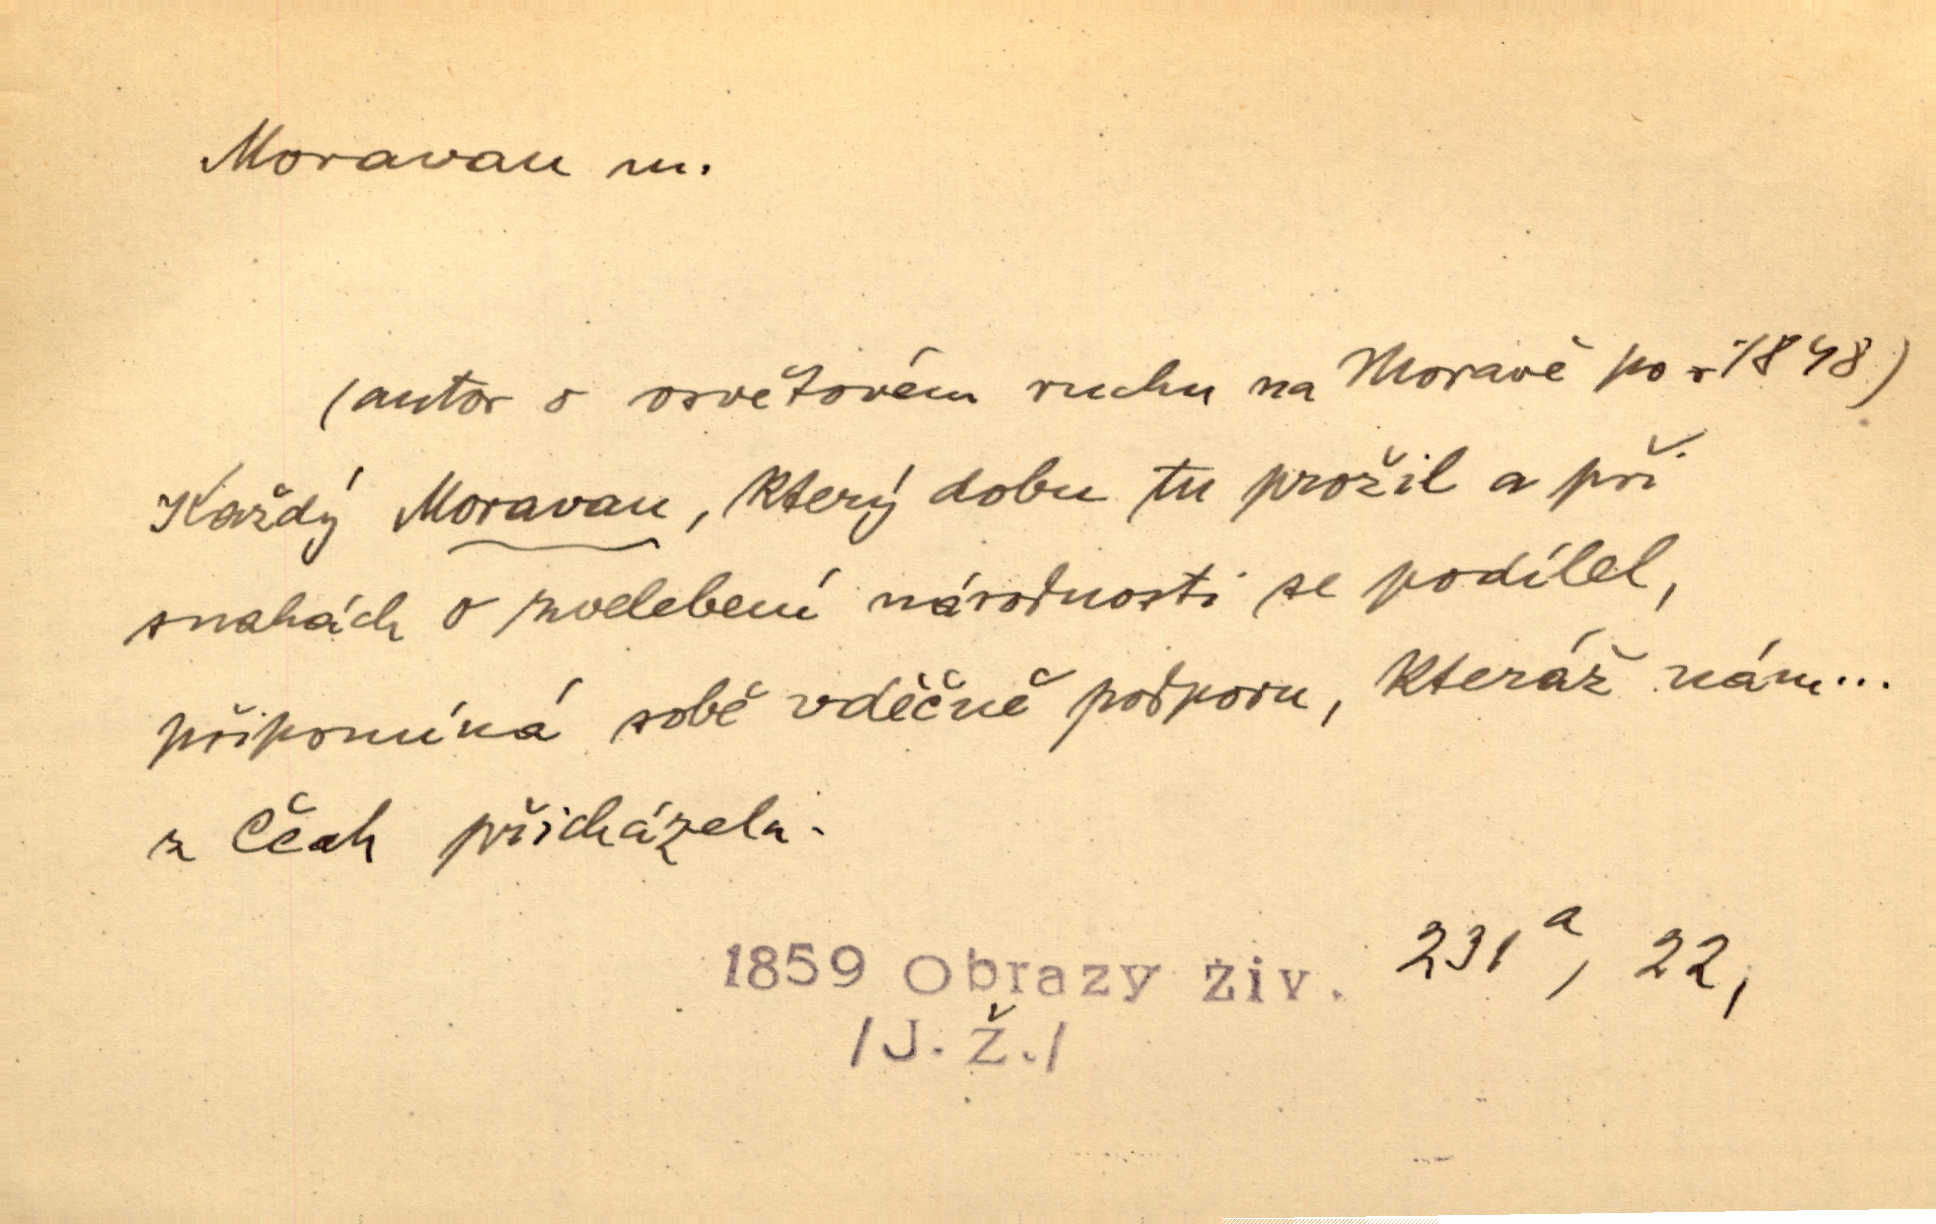 Moravan m.
(autor o osvětovém ruchu na Moravě po r 1848)
Každý Moravan, který dobu tu prožil a při
snahách o zvelebení národnosti se podílel,
připomíná sobě vděčně podporu, kteráž nám...
z Čech přicházela.
1859 Obrazy živ. 231a, 22,
/J.Ž./